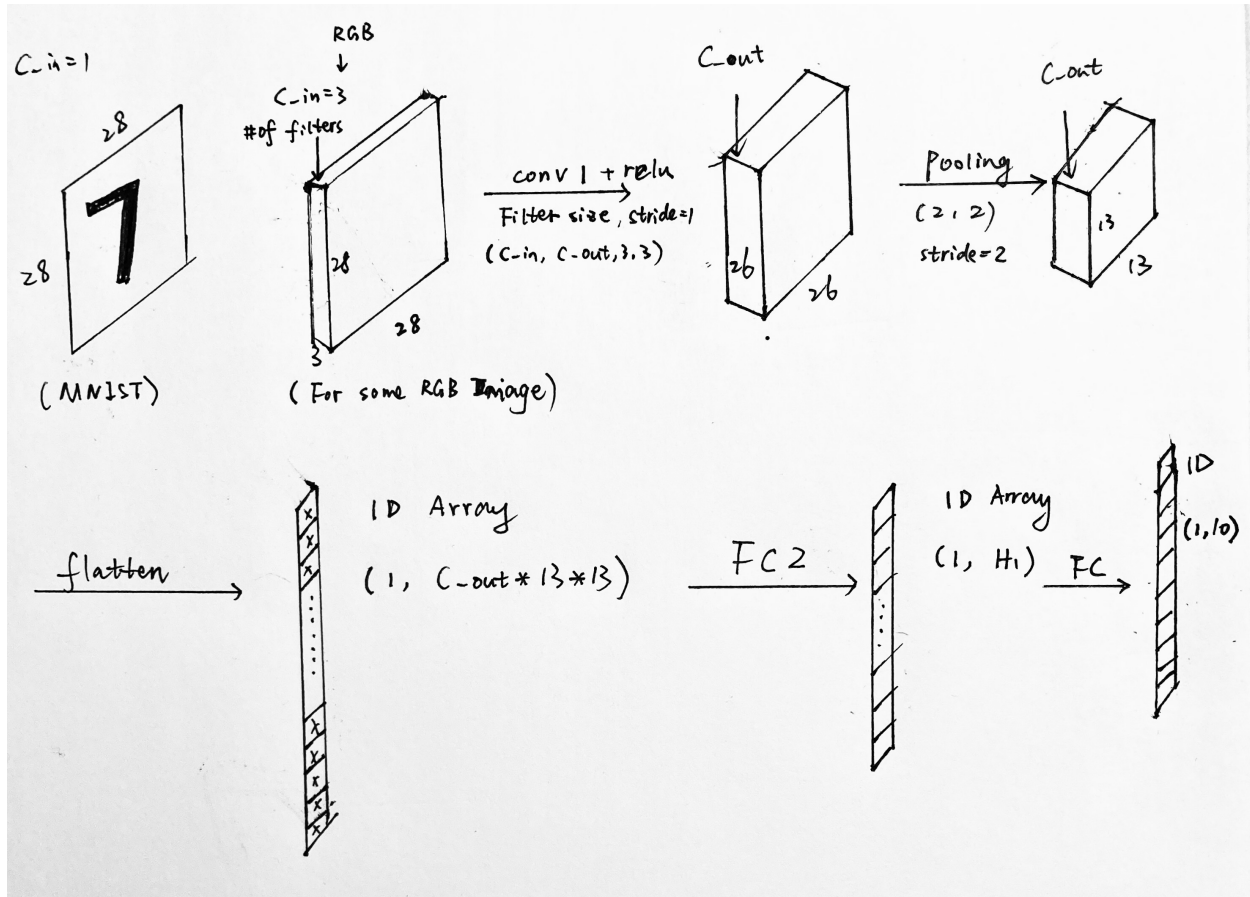 C_in=1
28
28
(MNIST)
RGB
↓
C_in=3
#of filters
28
28
3
(For some RGB Image)
conv 1 + relu
Filter size, stride=1
(C_in, C_out, 3, 3)
C_out
26
26
Pooling
(2, 2)
stride=2
C_out
13
13
flatten
x
x
x
x
x
x
x
x
1D Array
(1, C_out * 13 * 13)
FC2
1D Array
(1, H1)
FC
1D
(1, 10)